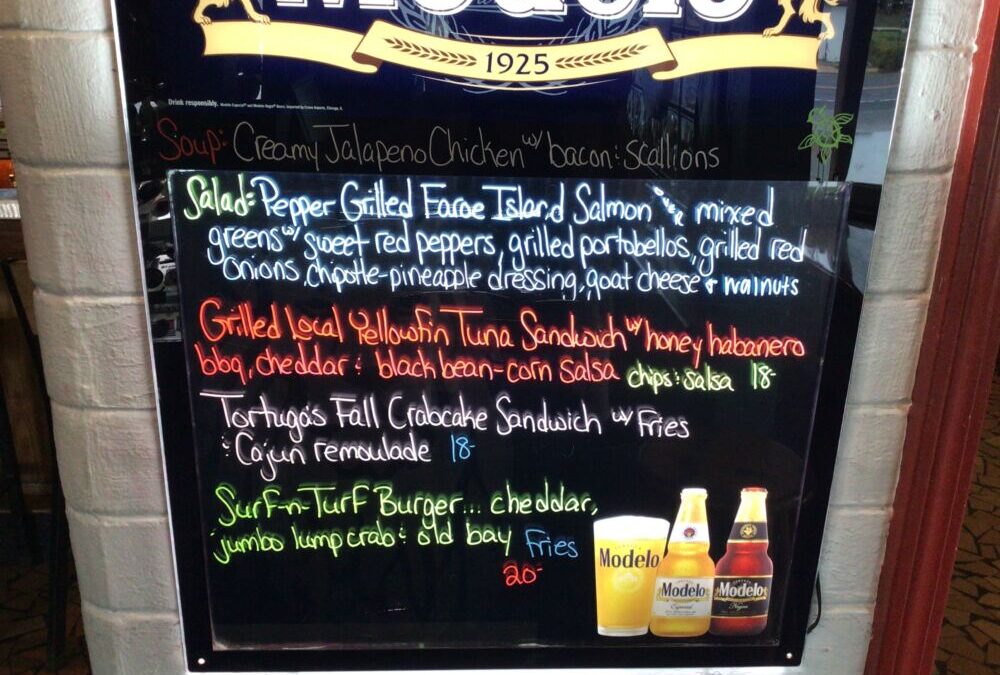 Modelo
1925
Drink responsibly.
Soup: Creamy Jalapeno Chicken w/ bacon & scallions
Salad: Pepper Grilled Faroe Island Salmon mixed
greens w/ sweet red peppers, grilled portobellos, grilled red
onions, chipotle-pineapple dressing, goat cheese & walnuts
Grilled Local Yellowfin Tuna Sandwich w/ honey habanero
bbq, cheddar & black bean-corn salsa chips & salsa 18-
Tortuga's Fall Crabcake Sandwich w/ Fries
& Cajun remoulade 18-
Surf-n-Turf Burger... cheddar,
jumbo lump crab & old bay Fries
20-
Modelo
Modelo
Especial
Modelo
Negra